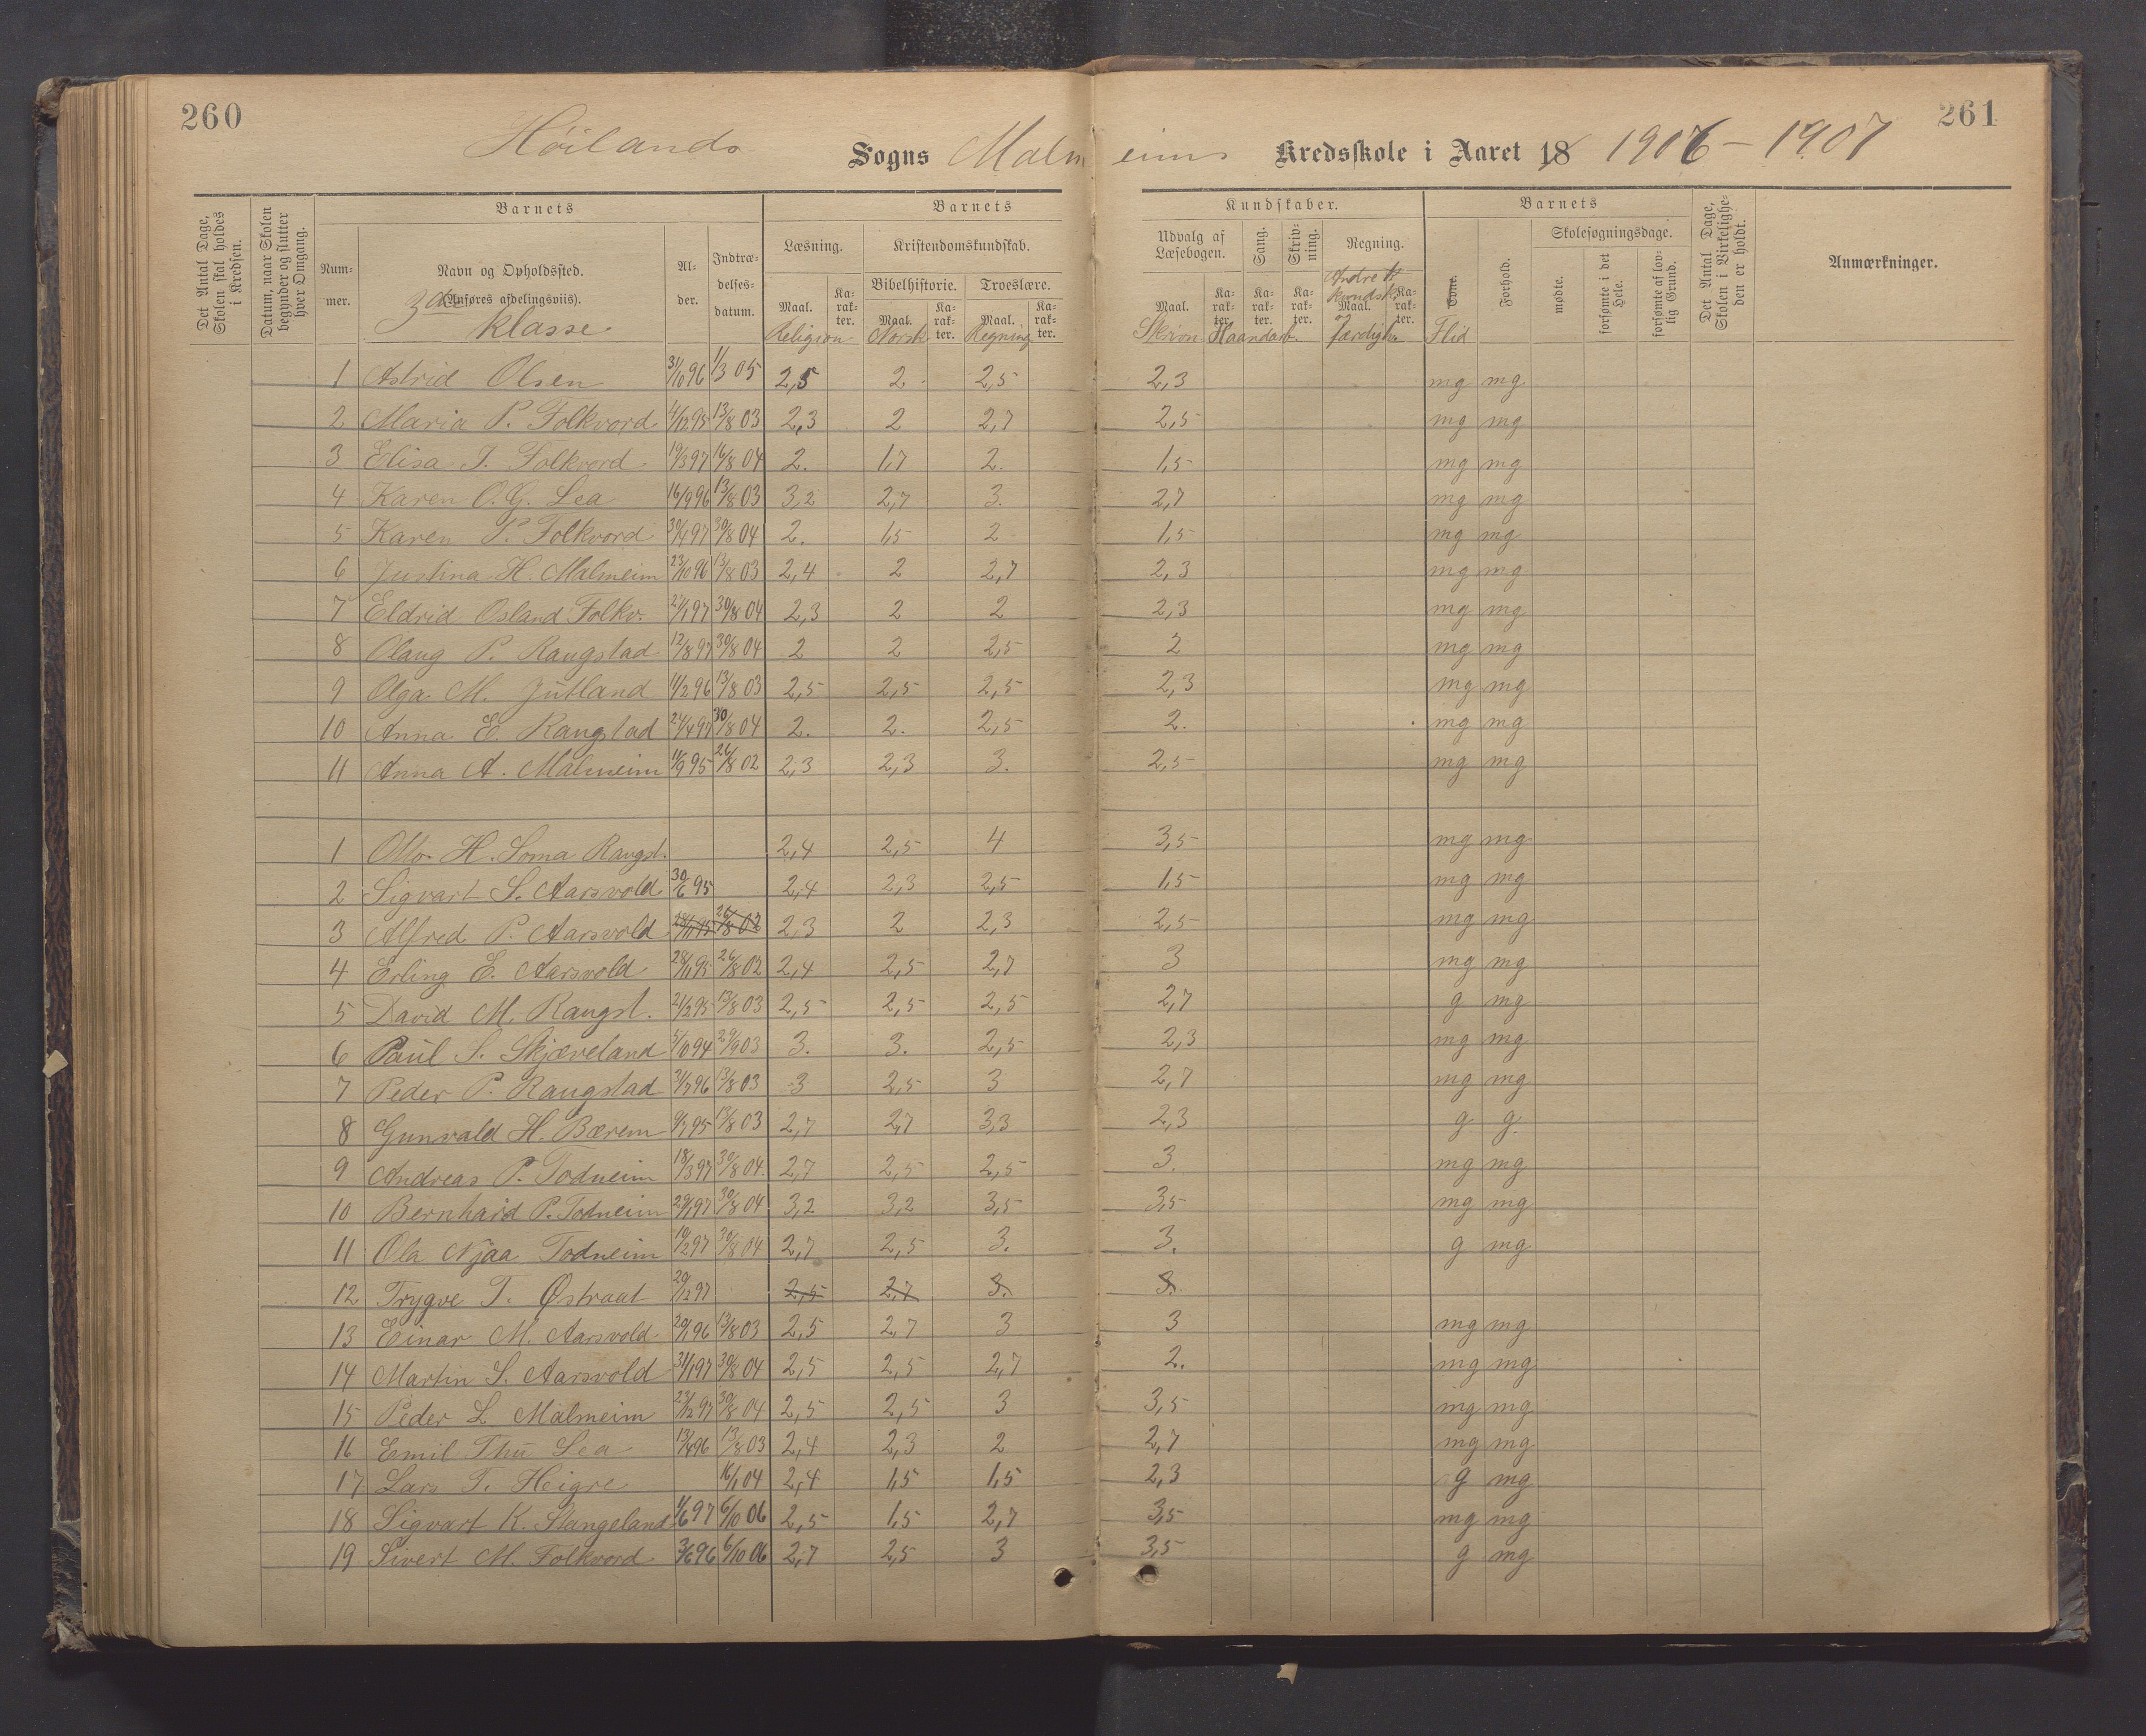 260
261
Höilands Sogns Malmeims Kredsskole i Aaret 18 1906-1907
Det Antal Dage, Skolen skal holdes i Kredsen.
Datum, naar Skolen begynder og slutter hver Omgang.
Barnets
Barnets
Kundskaber.
Barnets
Det Antal Dage, Skolen i Virkelighe- den er holdt.
Anmærkninger.
Num- mer.
Navn og Opholdssted.
(Anføres afdelingsviis).
3die klasse
Al- der.
Indtræ- delses- datum.
Læsning.
Kristendomskundskab.
Bibelhistorie. Troeslære.
Udvalg af Læsebogen.
Sang.
Skriv- ning.
Regning.
Evne.
Forhold.
Skolesøgningsdage.
mødte.
forsømte i det Hele.
forsømte af lov- lig Grund.
Maal. Ka- rak- ter. Maal. Ka- rak- ter. Maal. Ka- rak- ter. Maal. Ka- rak- ter. Ka- rak- ter. Ka- rak- ter. Maal. Ka- rak- ter.
Religion Norsk Regning Skrivn Haandarb. Andre kundsk. og færdigh. Flid
1 Astrid Olsen 31/10 96 1/3 05 2,5 2 2,5 2,3 mg mg
2 Maria P. Folkvord 4/12 95 13/8 03 2,3 2 2,7 2,5 mg mg
3 Elisa T. Folkvord 19/3 97 16/8 04 2. 1,7 2. 1,5 mg mg
4 Karen O. G. Lea 16/9 96 13/8 03 3,2 2,7 3. 2,7 mg mg
5 Karen P. Folkvord 30/4 97 30/8 04 2. 1,5 2 1,5 mg mg
6 Justina H. Malmeim 23/10 96 13/8 03 2,4 2 2,7 2,3 mg mg
7 Eldrid Osland Folkv. 30/8 04 2,3 2 2 2,3 mg mg
8 Olaug P. Raugstad 12/8 97 30/8 04 2 2 2,5 2 mg mg
9 Olga M. Jutland 11/2 96 13/8 03 2,5 2,5 2,5 2,3 mg mg
10 Anna E. Raugstad 24/4 97 30/8 04 2. 2. 2,5 2. mg mg
11 Anna A. Malmeim 11/9 95 26/8 02 2,3 2,3 3. 2,5 mg mg
1 Otto H. Soma Raugst. 2,4 2,5 4 3,5 mg mg
2 Sigvart S. Aarsvold 30/6 95 2,4 2,3 2,5 1,5 mg mg
3 Alfred P. Aarsvold 28/11 95 26/8 02 2,3 2 2,3 2,5 mg mg
4 Erling E. Aarsvold 28/11 95 26/8 02 2,4 2,5 2,7 3 mg mg
5 David M. Raugst. 21/2 95 13/8 03 2,5 2,5 2,5 2,7 g mg
6 Paul S. Skjæveland 5/10 94 29/9 03 3. 3. 2,5 2,3 mg mg
7 Peder P. Raugstad 31/7 96 13/8 03 3 2,5 3 2,7 mg mg
8 Gunvald H. Bærem 9/7 95 13/8 03 2,7 2,7 3,3 2,3 g g
9 Andreas P. Todneim 18/3 97 30/8 04 2,7 2,5 2,5 3. mg mg
10 Bernhard P. Todneim 29/1 97 30/8 04 3,2 3,2 3,5 3,5 mg mg
11 Ola Njaa Todneim 19/2 97 30/8 04 2,7 2,5 3. 3. g mg
12 Trygve T. Østraat 29/12 97 2,5 2,7 3. 3.
13 Einar M. Aarsvold 29/1 96 13/8 03 2,5 2,7 3 3 mg mg
14 Martin S. Aarsvold 31/1 97 30/8 04 2,5 2,5 2,7 2. mg mg
15 Peder L. Malmeim 23/12 97 30/8 04 2,5 2,5 3 3,5 mg mg
16 Emil Thu Lea 13/4 96 13/8 03 2,4 2,3 2 2,7 mg mg
17 Lars T. Heigre 16/1 04 2,4 1,5 1,5 2,3 g mg
18 Sigvart K. Stangeland 1/6 97 6/10 06 2,5 1,5 2,7 3,5 mg mg
19 Sivert M. Folkvord 3/6 96 6/10 06 2,7 2,5 3 3,5 g mg